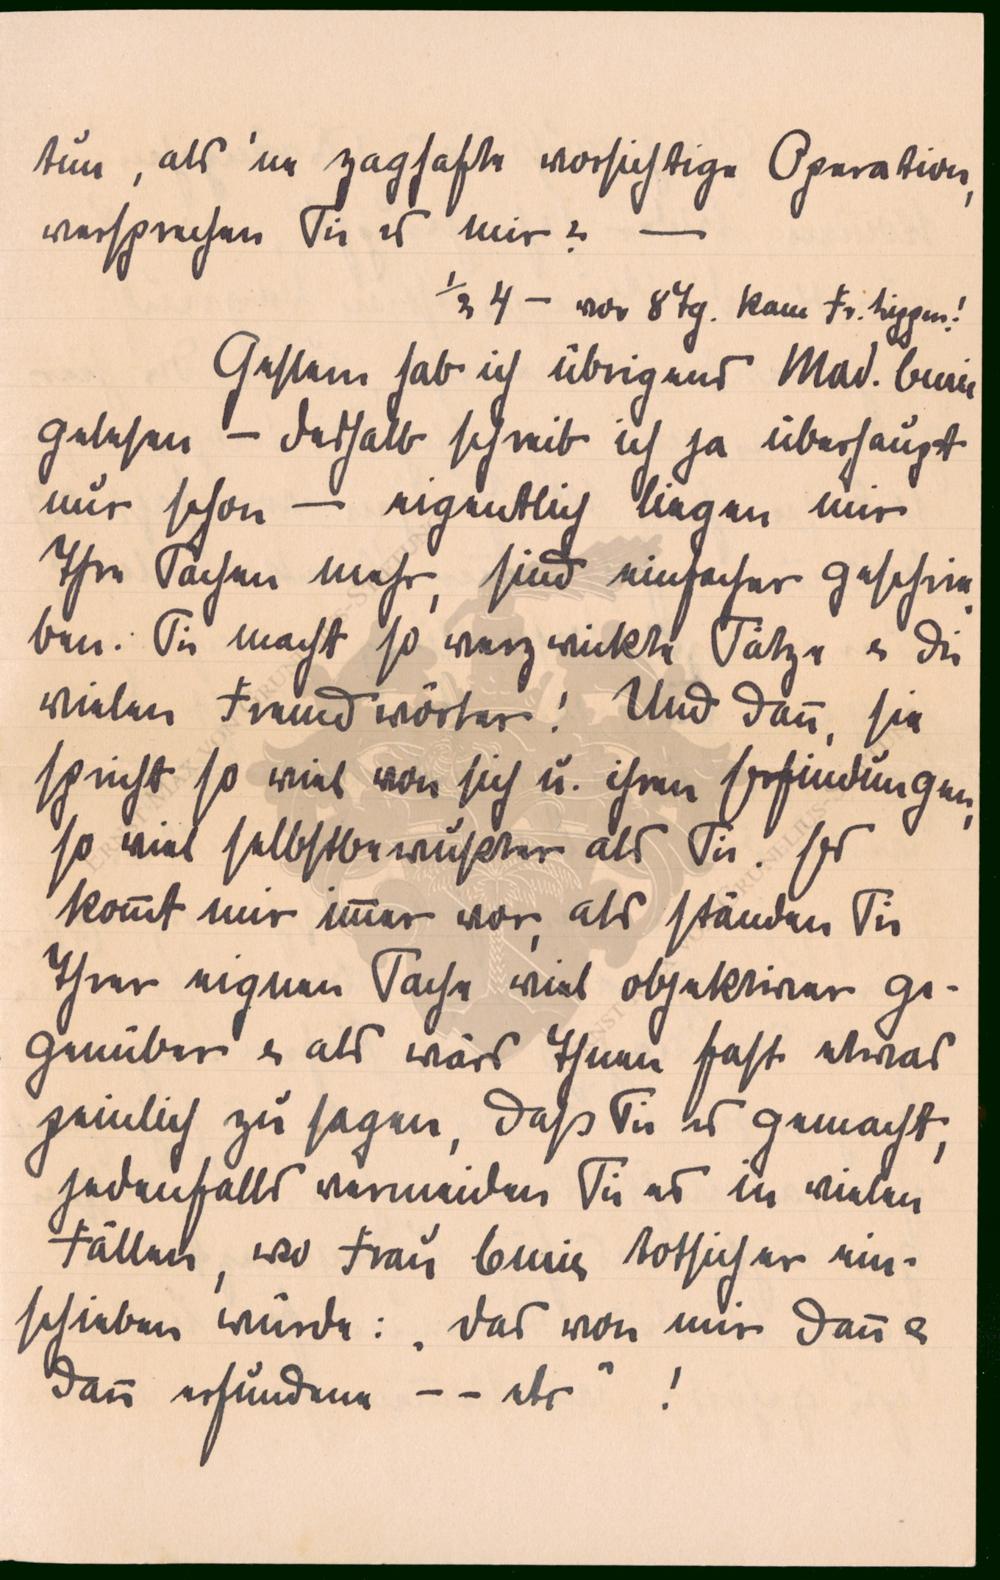 tun, als 'ne zaghafte vorsichtige Operation,
versprechen Sie es mir? —
½ 4 — vor 8 Tg. kam Fr. Lippm!
Gestern hab ich übrigens Mad. Curie
gelesen — deshalb schreib ich ja überhaupt
nur schon — eigentlich liegen mir
Ihre Sachen mehr, sind einfacher geschrie-
ben. Sie macht so verzwickte Sätze & die
vielen Fremdwörter! Und dañ, sie
spricht so viel von sich u. ihren Erfindungen,
so viel selbstbewußter als Sie. Es
kom̄t mir im̄er vor, als ständen Sie
Ihrer eignen Sache viel objektiver ge-
genüber & als wärs Ihnen fast etwas
peinlich zu sagen, daß Sie es gemacht,
jedenfalls vermeiden Sie es in vielen
Fällen, wo Frau Curie totsicher ein-
schieben würde: „das von mir dañ &
dañ erfundene -- etc" !